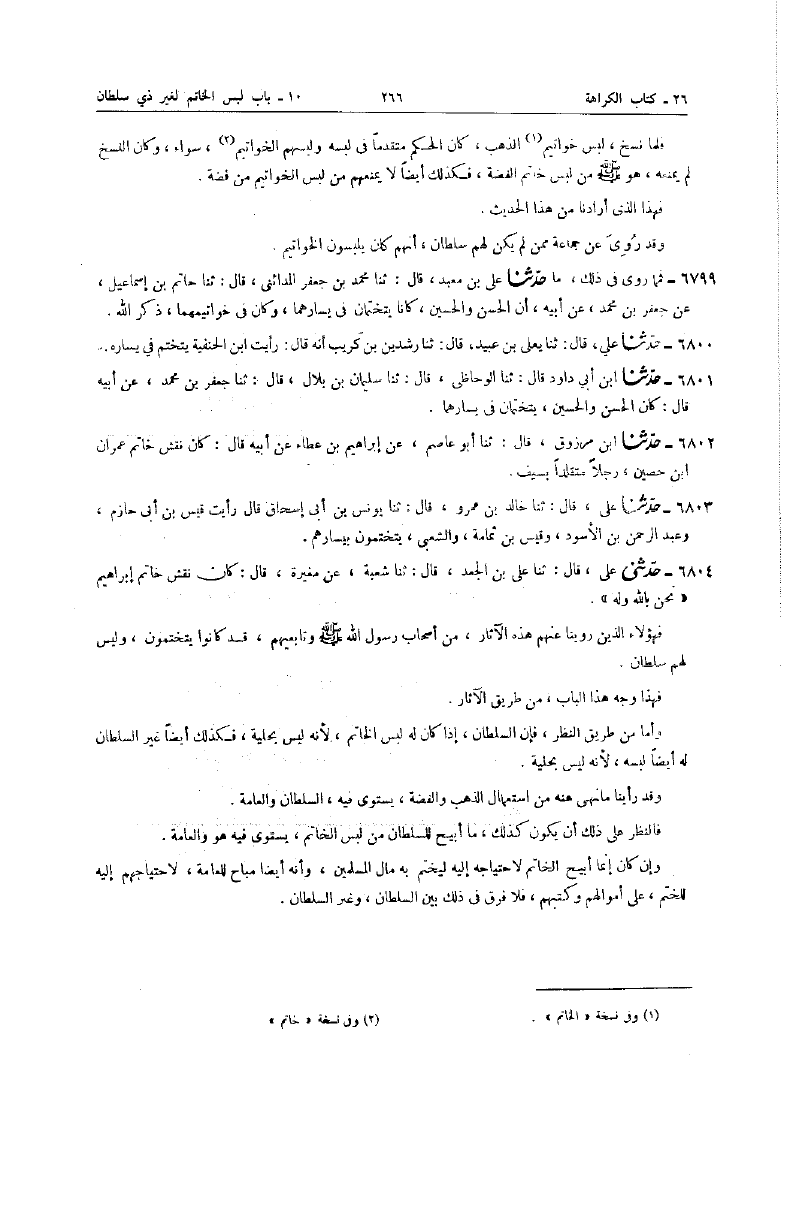 ٢٦ ـ كتاب الكراهة ٢٦٦ ١٠ ـ باب لبس الخاتم لغير ذي سلطان
فلما نسخ ، لبس خواتيم(١) الذهب ، كان الحكم متقدماً فى لبسه ولبسهم الخواتيم(٢) ، سواء ، وكان النسخ
لم يمنعه ، هو ﷺ من لبس خاتم الفضة ، فكذلك أيضاً لا يمنعهم من لبس الخواتيم من فضة .
فهذا الذى أرادنا من هذا الحديث .
وقد رُوِىَ عن جماعة ممن لم يكن لهم سلطان ، أنهم كان يلبسون الخواتيم .
٦٧٩٩ ـ فما روى فى ذلك ، ما حدّثنا على بن معبد ، قال : ثنا محمد بن جعفر المدائنى ، قال : ثنا حاتم بن إسماعيل ،
عن جعفر بن محمد ، عن أبيه ، أن الحسن والحسين ، كانا يتختمان فى يسارهما ، وكان فى خواتيمهما ، ذكر الله .
٦٨٠٠ ـ حدّثنا علي، قال: ثنا يعلى بن عبيد، قال: ثنا رشدين بن كريب أنه قال: رأيت ابن الحنفية يتختم في يساره.
٦٨٠١ ـ حدّثنا ابن أبي داود قال : ثنا الوحاظى ، قال : ثنا سليمان بن بلال ، قال : ثنا جعفر بن محمد ، عن أبيه
قال : كان الحسن والحسين ، يتختمان فى يسارهما .
٦٨٠٢ ـ حدّثنا ابن مرزوق ، قال : ثنا أبو عاصم ، عن إبراهيم بن عطاء عن أبيه قال : كان نقش خاتم عمران
ابن حصين ، رجلاً متقلداً بسيف .
٦٨٠٣ ـ حدّثنا على ، قال : ثنا خالد بن عمرو ، قال : ثنا يونس بن أبى إسحاق قال رأيت قيس بن أبى حازم ،
وعبد الرحمن بن الأسود ، وقيس بن ثمامة ، والشعبى ، يتختمون بيسارهم .
٦٨٠٤ ـ حدّثنى على ، قال : ثنا على بن الجعد ، قال : ثنا شعبة ، عن مغيرة ، قال : كان نقش خاتم إبراهيم
« نحن بالله وله » .
فهؤلاء الذين روينا عنهم هذه الآثار ، من أصحاب رسول الله ﷺ وتابعيهم ، قد كانوا يتختمون ، وليس
لهم سلطان .
فهذا وجه هذا الباب ، من طريق الآثار .
وأما من طريق النظر ، فإن السلطان ، إذا كان له لبس الخاتم ، لأنه ليس بحلية ، فكذلك أيضاً غير السلطان
له أيضاً لبسه ، لأنه ليس بحلية .
وقد رأينا ما نهى عنه من استعمال الذهب والفضة ، يستوى فيه ، السلطان والعامة .
فالنظر على ذلك أن يكون كذلك ، ما أبيح للسلطان من لبس الخاتم ، يستوى فيه هو والعامة .
وإن كان إنما أبيح الخاتم لاحتياجه إليه ليختم به مال المسلمين ، وأنه أيضا مباح للعامة ، لاحتياجهم إليه
للختم ، على أموالهم وكتبهم ، فلا فرق فى ذلك بين السلطان ، وغير السلطان .
(١) وفى نسخة « الخاتم » . (٢) وفى نسخة « خاتم »